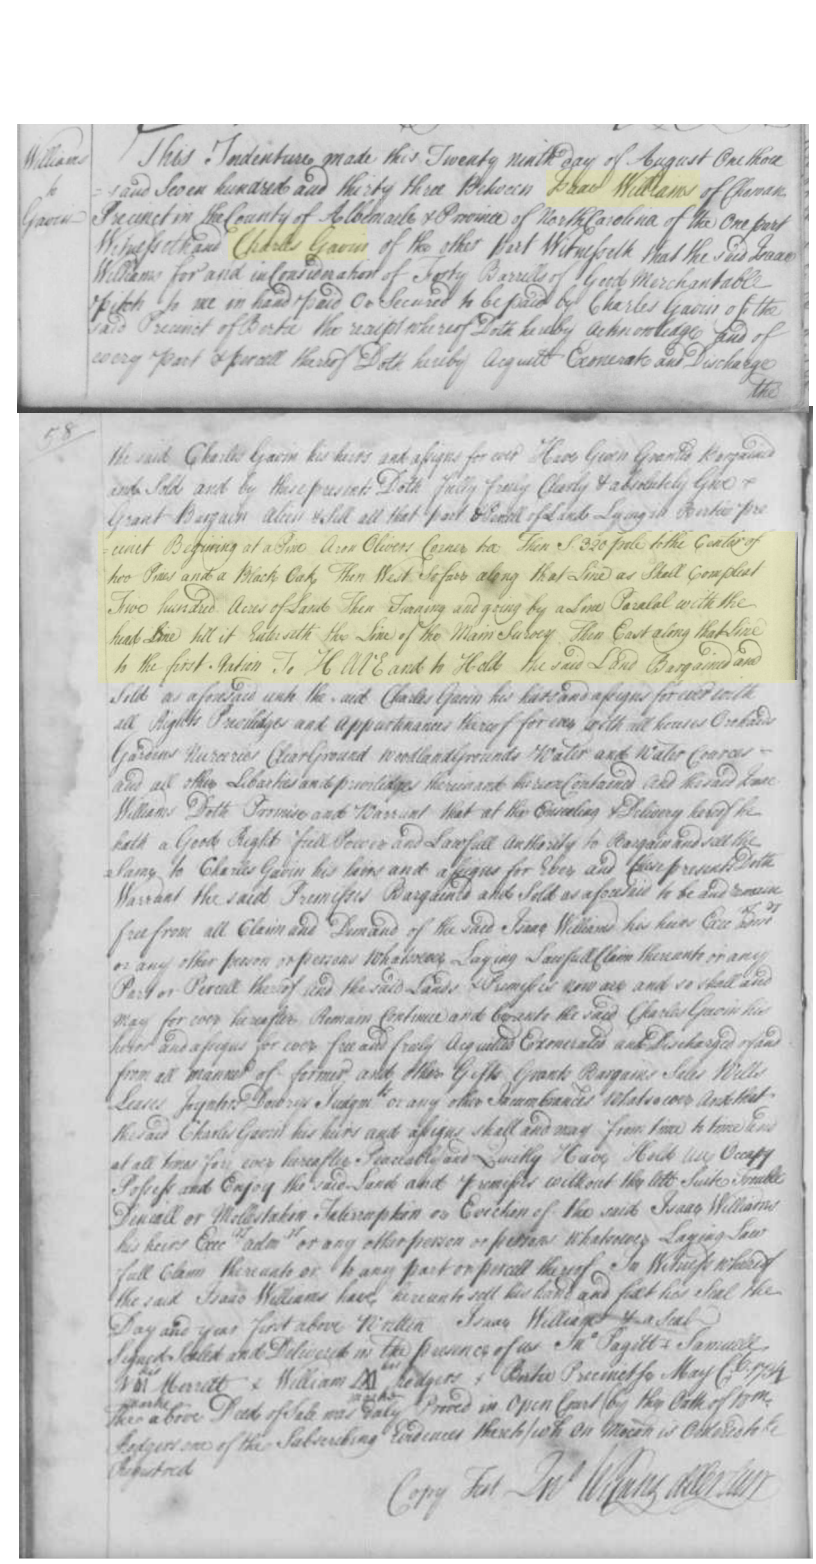 Williams
to
Gavin
This Indenture made this Twenty ninth day of August One thou
= sand Seven hundred and thirty three Between Isaac Williams of Chowan
Precinct in the County of Albemarle & Province of North Carolina of the One part
Witnesseth and Charles Gavin of the other Part Witnesseth that the said Isaac
Williams for and in Consideration of Forty Barrells of Good Merchantable
Pitch to me in hand paid Or Secured to be paid by Charles Gavin of the
said Precinct of Bertie the receipt whereof Doth hereby acknowledge and of
every part & percell thereof Doth hereby Acquitt Exonerate and Discharge
the
58
the said Charles Gavin his heirs and assigns for ever Have Given Granted Bargained
and Sold and by these presents Doth fully freely Clearly & absolutely Give &
Grant Bargain Alien & Sell all that part & Percell of Land Lying in Bertie Pre
= cinct Begining at a Pine Aron Olivers Corner tree Then S 320 pole to the Center of
two Pines and a Black Oak, Then West So far along that Line as Shall Compleat
Five hundred Acres of Land Then Turning and going by a Line Paralal with the
head Line till it Intersseth the Line of the Main Survey Then East along that Line
to the first Station To HAVE and to Hold the said Land Bargained and
Sold as aforesaid unto the said Charles Gavin his heirs and assigns for ever with
all Rights Priviledges and Appurtinances thereof for ever with all houses Orchards
Gardens Nurceries Clear Ground woodland Grounds Water and Water Cources =
and all other Liberties and priviledges therein and thereon Contained And the said Isaac
Williams Doth Promise and Warrant that at the Ensealing & Delivery hereof he
hath a Good Right full Power and Lawfull Authority to Bargain and sell the
= Same to Charles Gavin his heirs and assigns for Ever and these presents Doth
Warrant the said Premisses Bargained and Sold as aforesaid to be and remain
free from all Claim and Demand of the said Isaac Williams his heirs Exec
or any other person or persons Whatsoever Laying Lawfull Claim thereunto or any
Part or Percell thereof And the said Lands & Premisses now are and so shall and
may for ever hereafter Remain Continue and to the said Charles Gavin his
heirs and assigns for ever free and freely Acquitted Exonerated and Discharged of and
from all manner of former and other Gifts Grants Bargains Sales Wills
Leases Joynters Dowrys Judgmts or any other Incumbrances Whatsoever And that
the said Charles Gavin his heirs and assigns shall and may from time to time and
at all times for ever hereafter Peaceably and Quietly Have Hold Use Occupy
Possess and Enjoy the said Land and Premises without the lett Suite Trouble
Deniall or Mollestation Interruption or Eviction of the said Isaac Williams
his heirs Execrs admrs or any other person or persons whatsoever Laying Law
full Claim thereunto or to any part or percell thereof In Witness whereof
the said Isaac Williams have hereunto sett his hand and fixt his Seal the
Day and year first above Written Isaac Williams & a Seal
Signed Sealed and Delivered in the presence of us Jno Pagitt & Samuell
his
Merrett & William Rodgers & Bertie Precinct May Ct. 1734
marke
The above Deed of Sale was duly Proved in Open Court by the Oath of Wm.
Rodgers one of the Subscribing Evidences thereto wch On Mocon is Ordered to be
Registred
Copy Test Jno